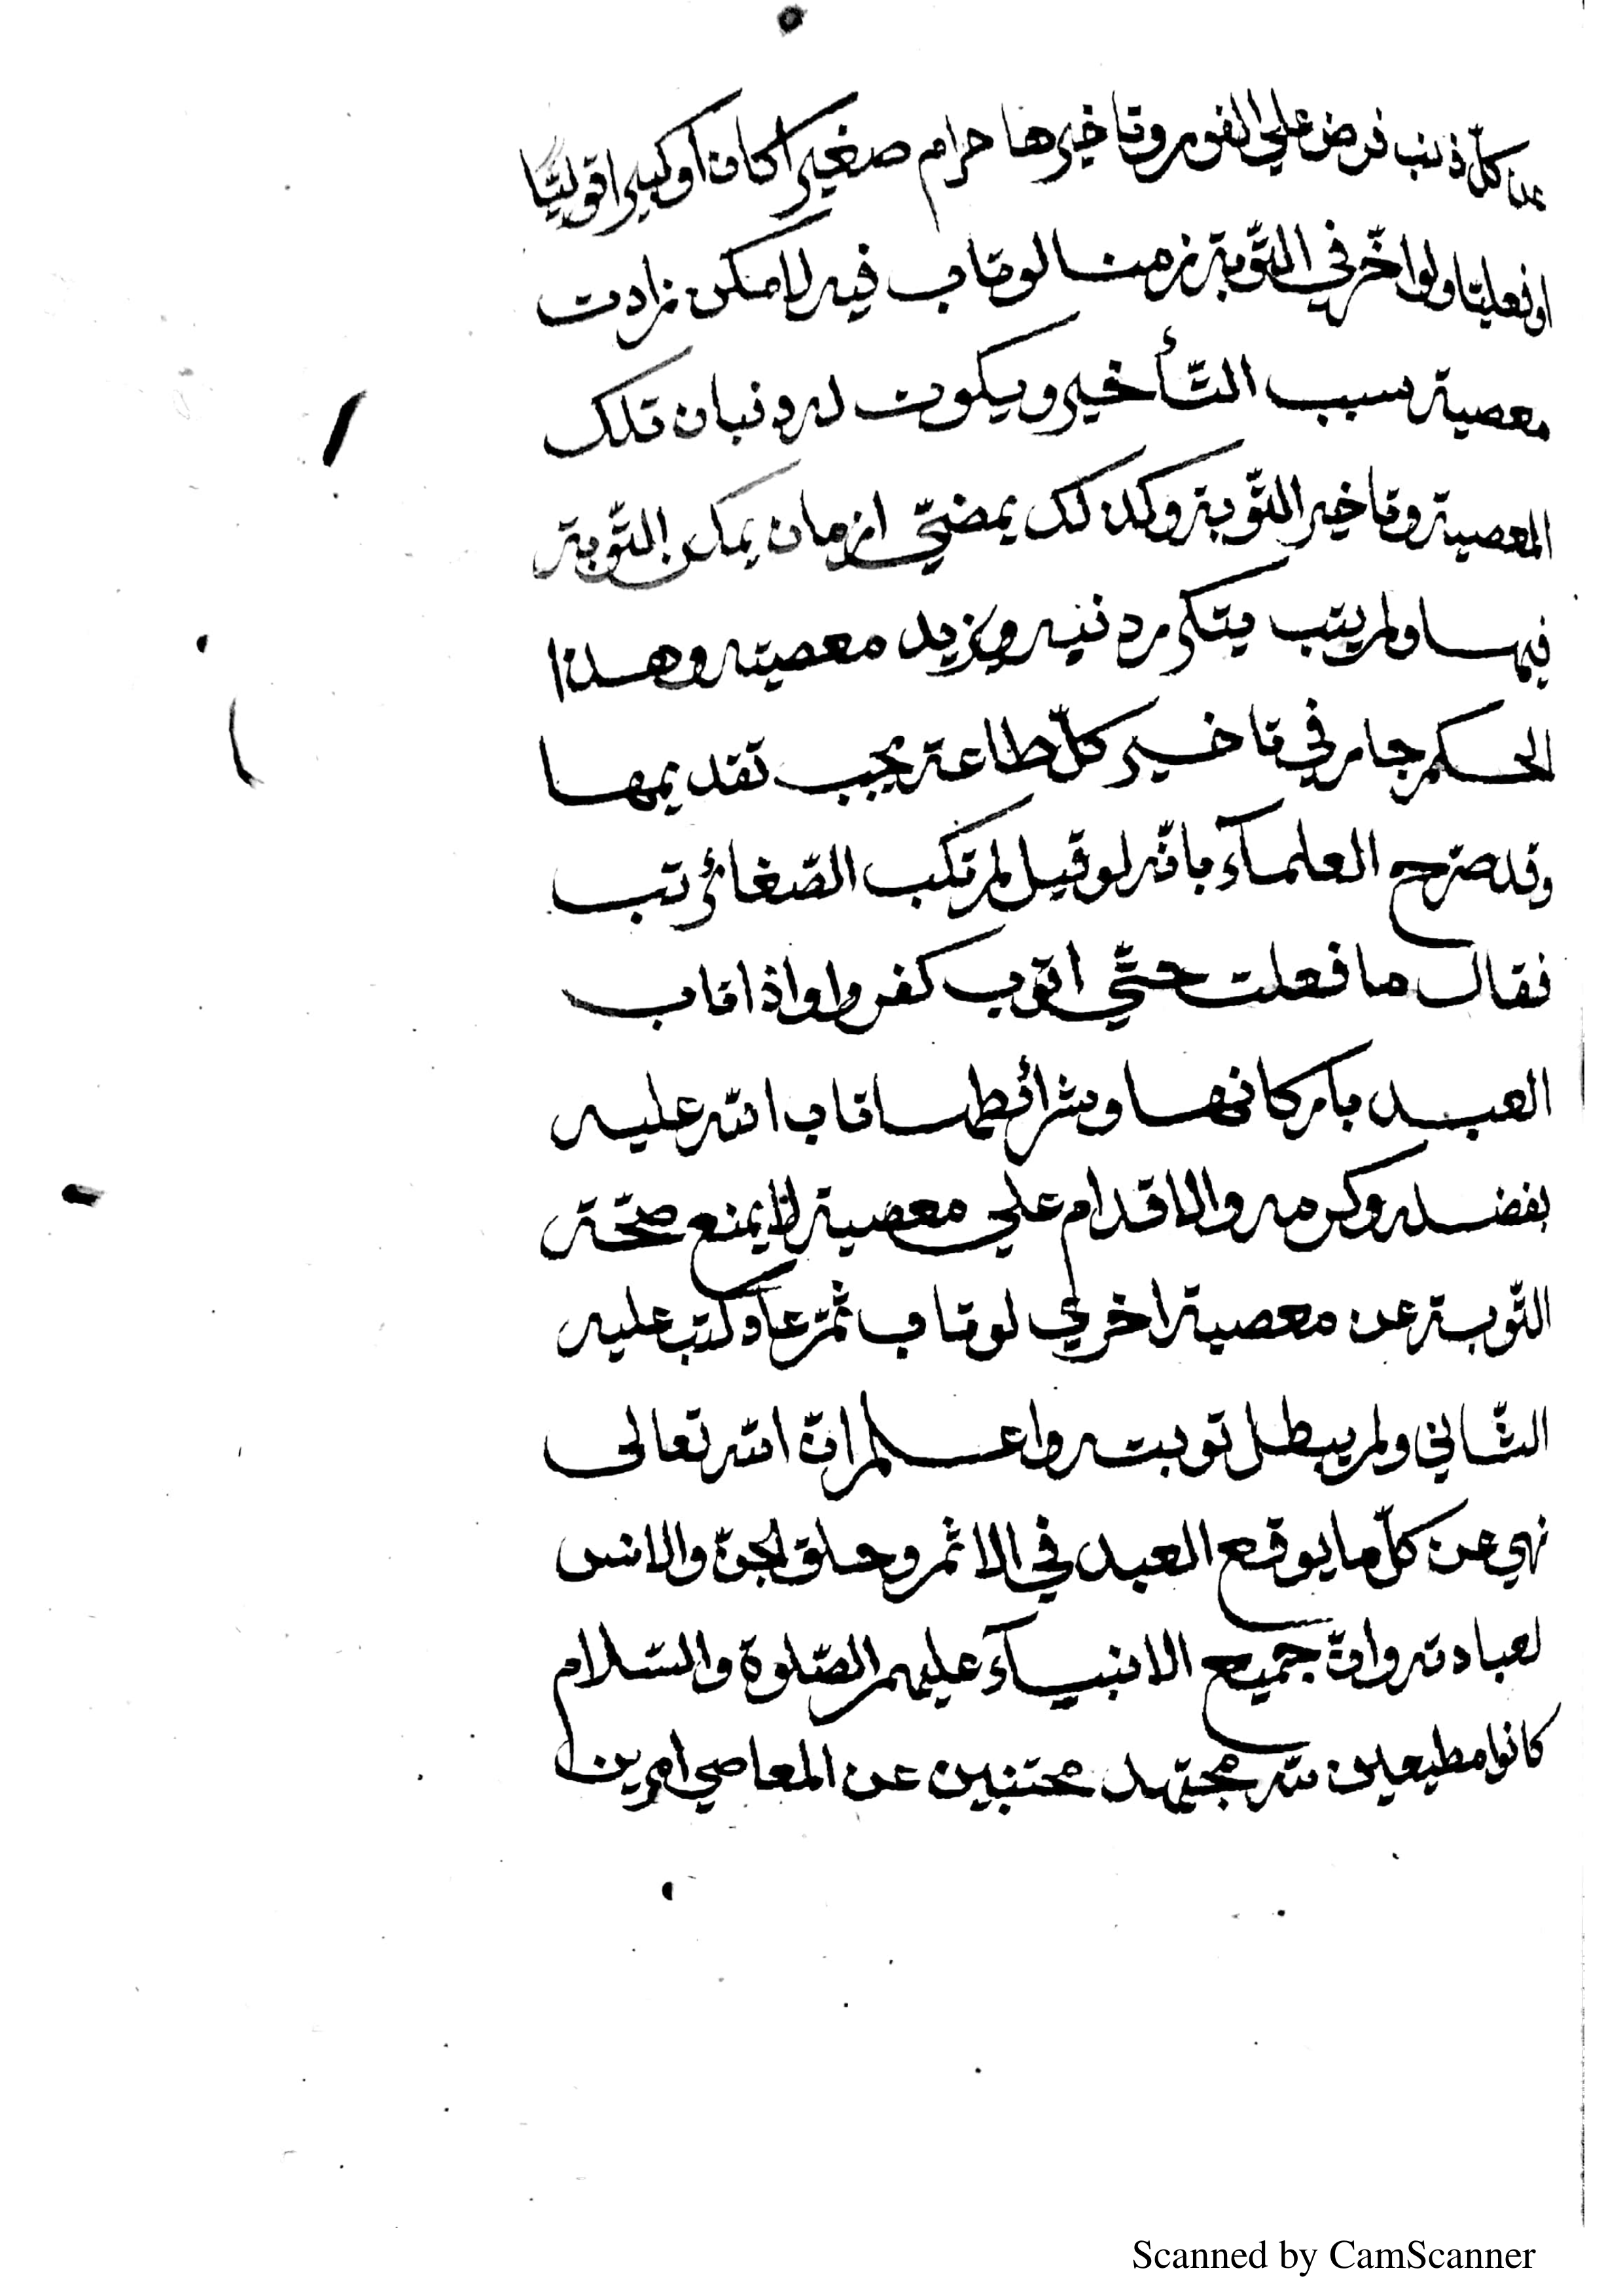 عن كلّ ذنب فرض على الفور وتاخيرها حرام صغيرا كان او كبيرا قوليّا
او فعليّا ولو اخّر في التّوبة زمنا لو تاب فيه لامكن زادت
معصية سبب التّأخير ويكون له ذنبان تلك
المعصية وتاخير التّوبة وكذلك يمضيّ ازمان يمكن التّوبة
فيها ولم يتب يتكرر ذنبه ويزيد معصيته وهذا
الحكم جار في تاخير كلّ طاعة يجب تقديمها
وقد صرّح العلمآء بانّه لو قيل لمرتكب الصّغائر تب
فقال ما فعلت حتّي اتوب كفر واذا تاب
العبد باركانها وشرائطها تاب الله عليه
بفضله وكرمه والاقدام علي معصية لا يمنع صحّة
التّوبة عن معصية اخري لو تاب ثمّ عاد كتب عليه
الثّاني ولم يبطل توبته واعلم انّ الله تعالى
نهي عن كلّ ما يوقع العبد في الاثم وخلق الجنّ والانس
لعبادته وانّ جميع الانبيآء عليهم الصّلوة والسّلام
كانوا مطيعين لله مجتهد مجتنبين عن المعاصي امرين
Scanned by CamScanner